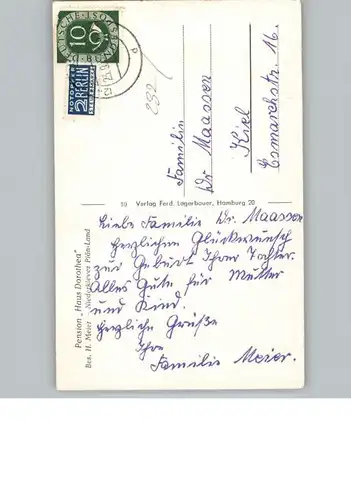 DEUTSCHE BUNDESPOST
10
NOTOPFER
2 BERLIN
STEUERMARKE
282
Familie
Dr Maassen
Kiel
Esmarchstr. 16.
Pension „Haus Dorothea"
Bes. H. Meier Niederkleveez Plön-Land
18 Verlag Ferd. Lagerbauer, Hamburg 20
Liebe Familie Dr. Maassen
Herzlichen Glückwunsch
zur Geburt Ihrer Tochter.
Alles Gute für Mutter
und Kind.
Herzliche Grüße
Ihre
Familie Meier.